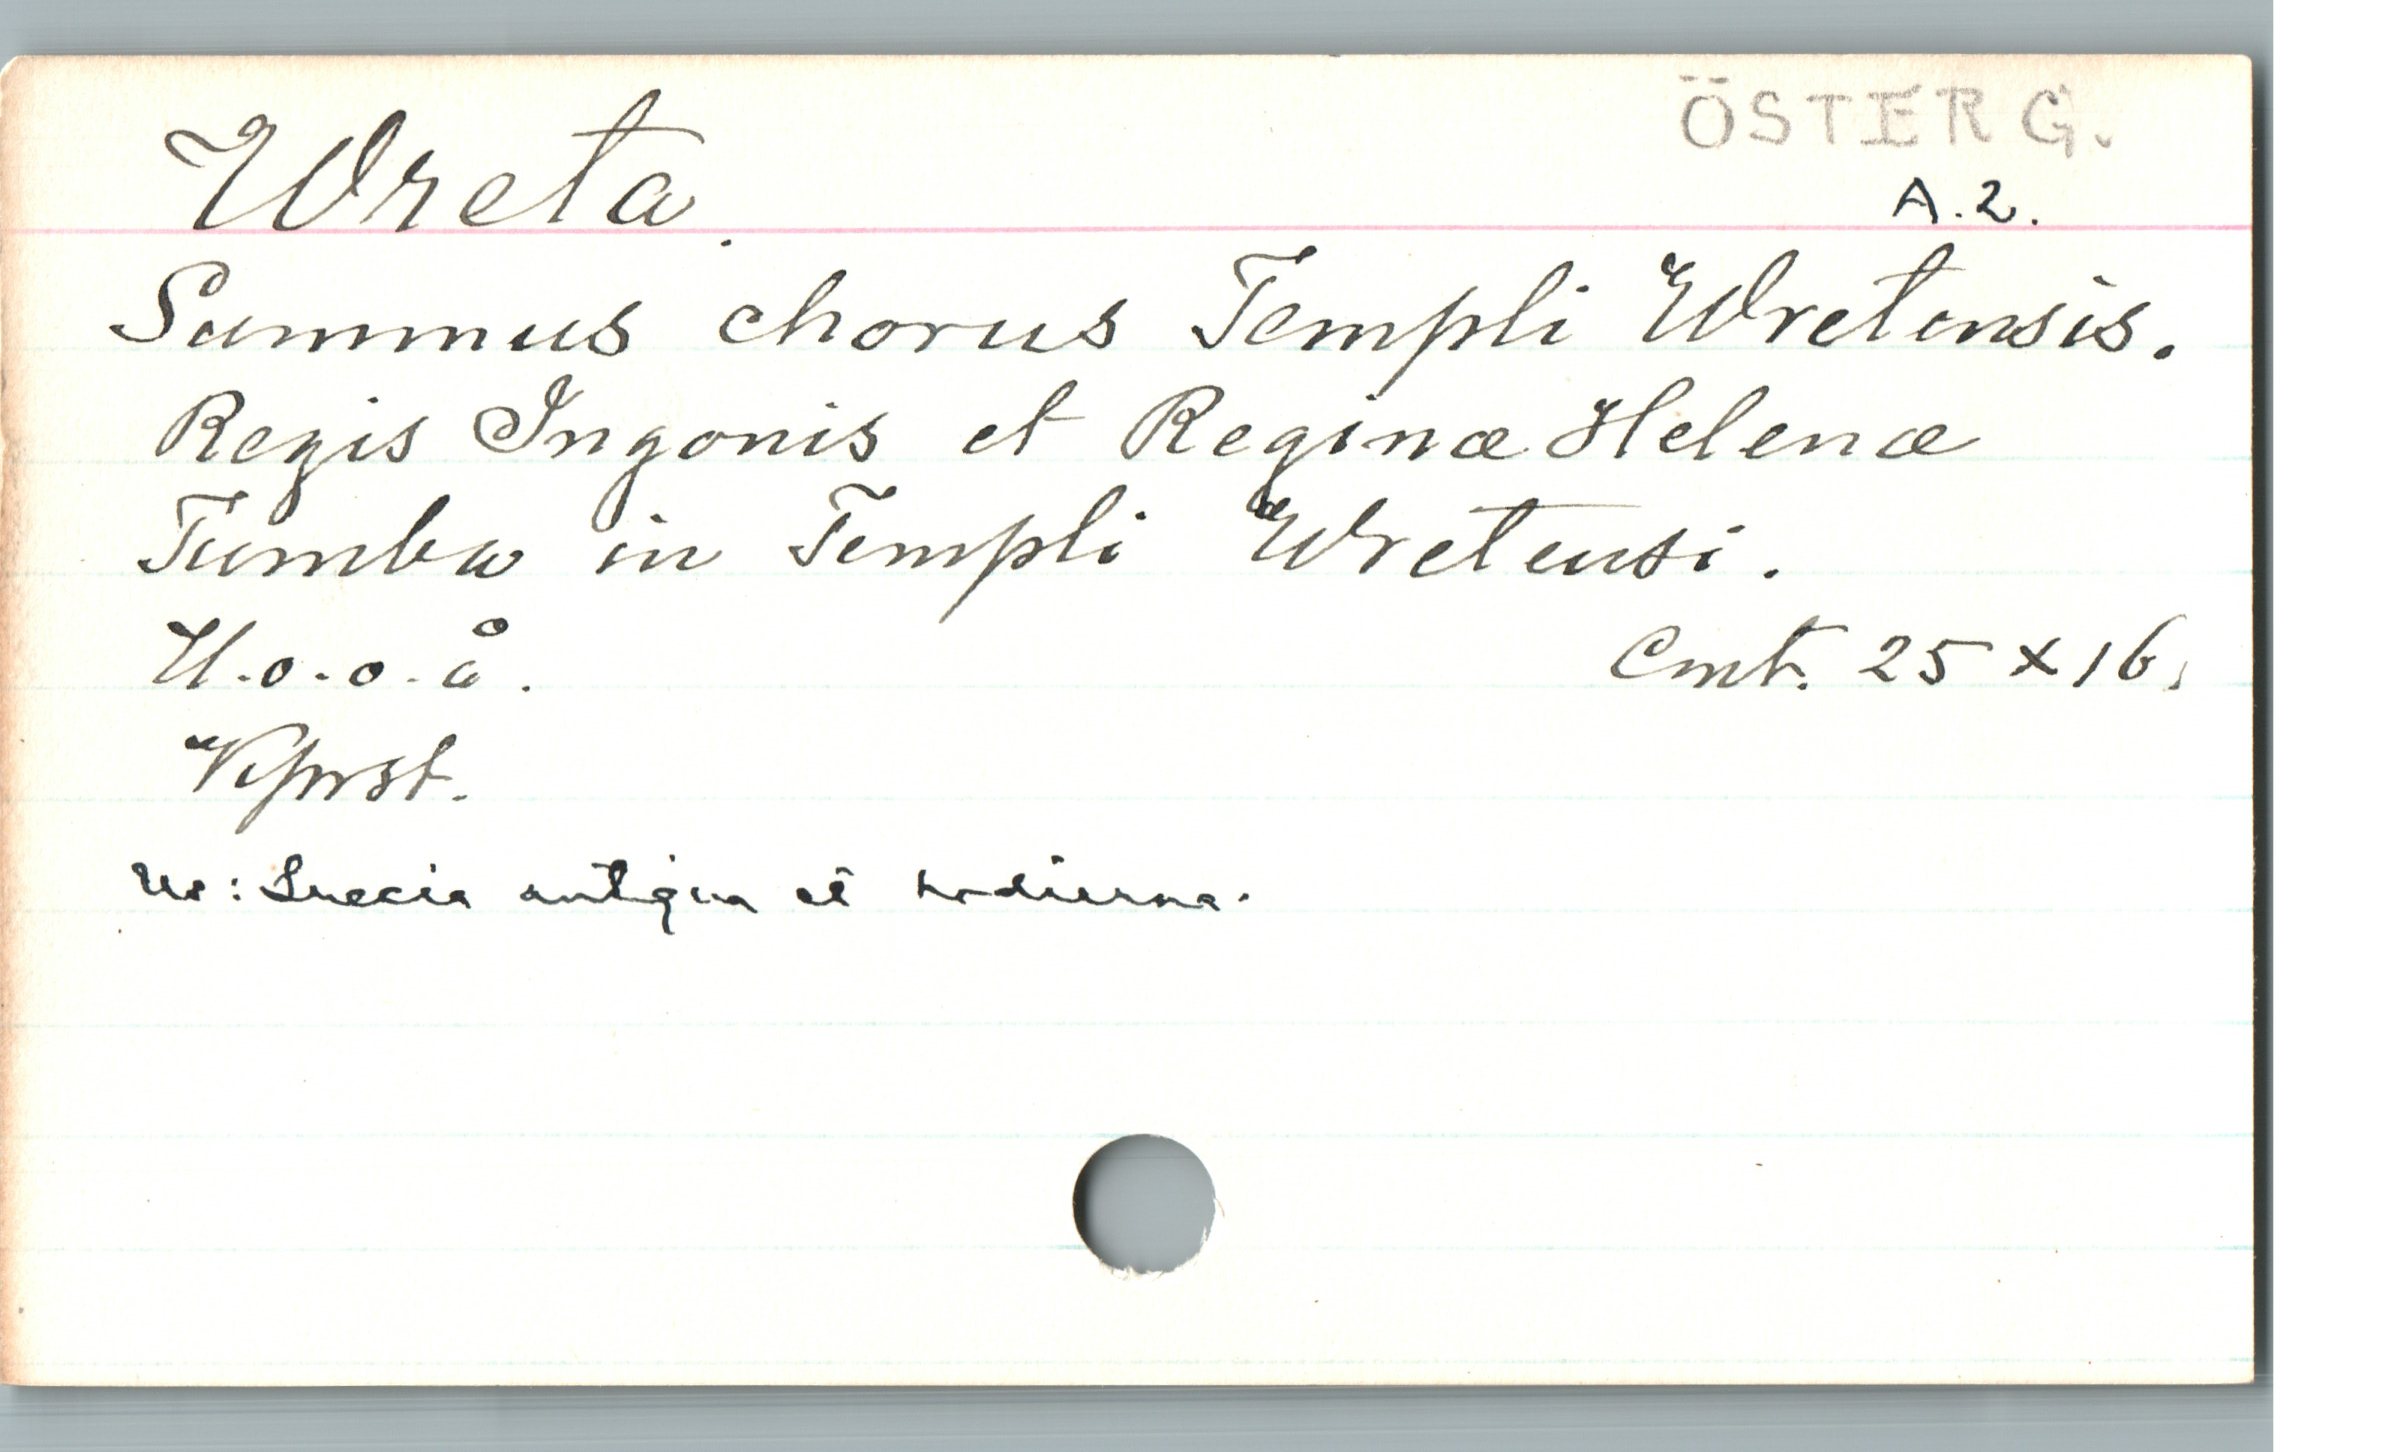 ÖSTERG.
Wreta.
A.2.
Summus chorus Templi Wretensis.
Regis Ingonis et Reginæ Helenæ
Tumba in Templi Wretensi.
U.o.o.å. Cmt. 25 x 16.
Kprst.
Ur: Suecia antiqua et hodierna.